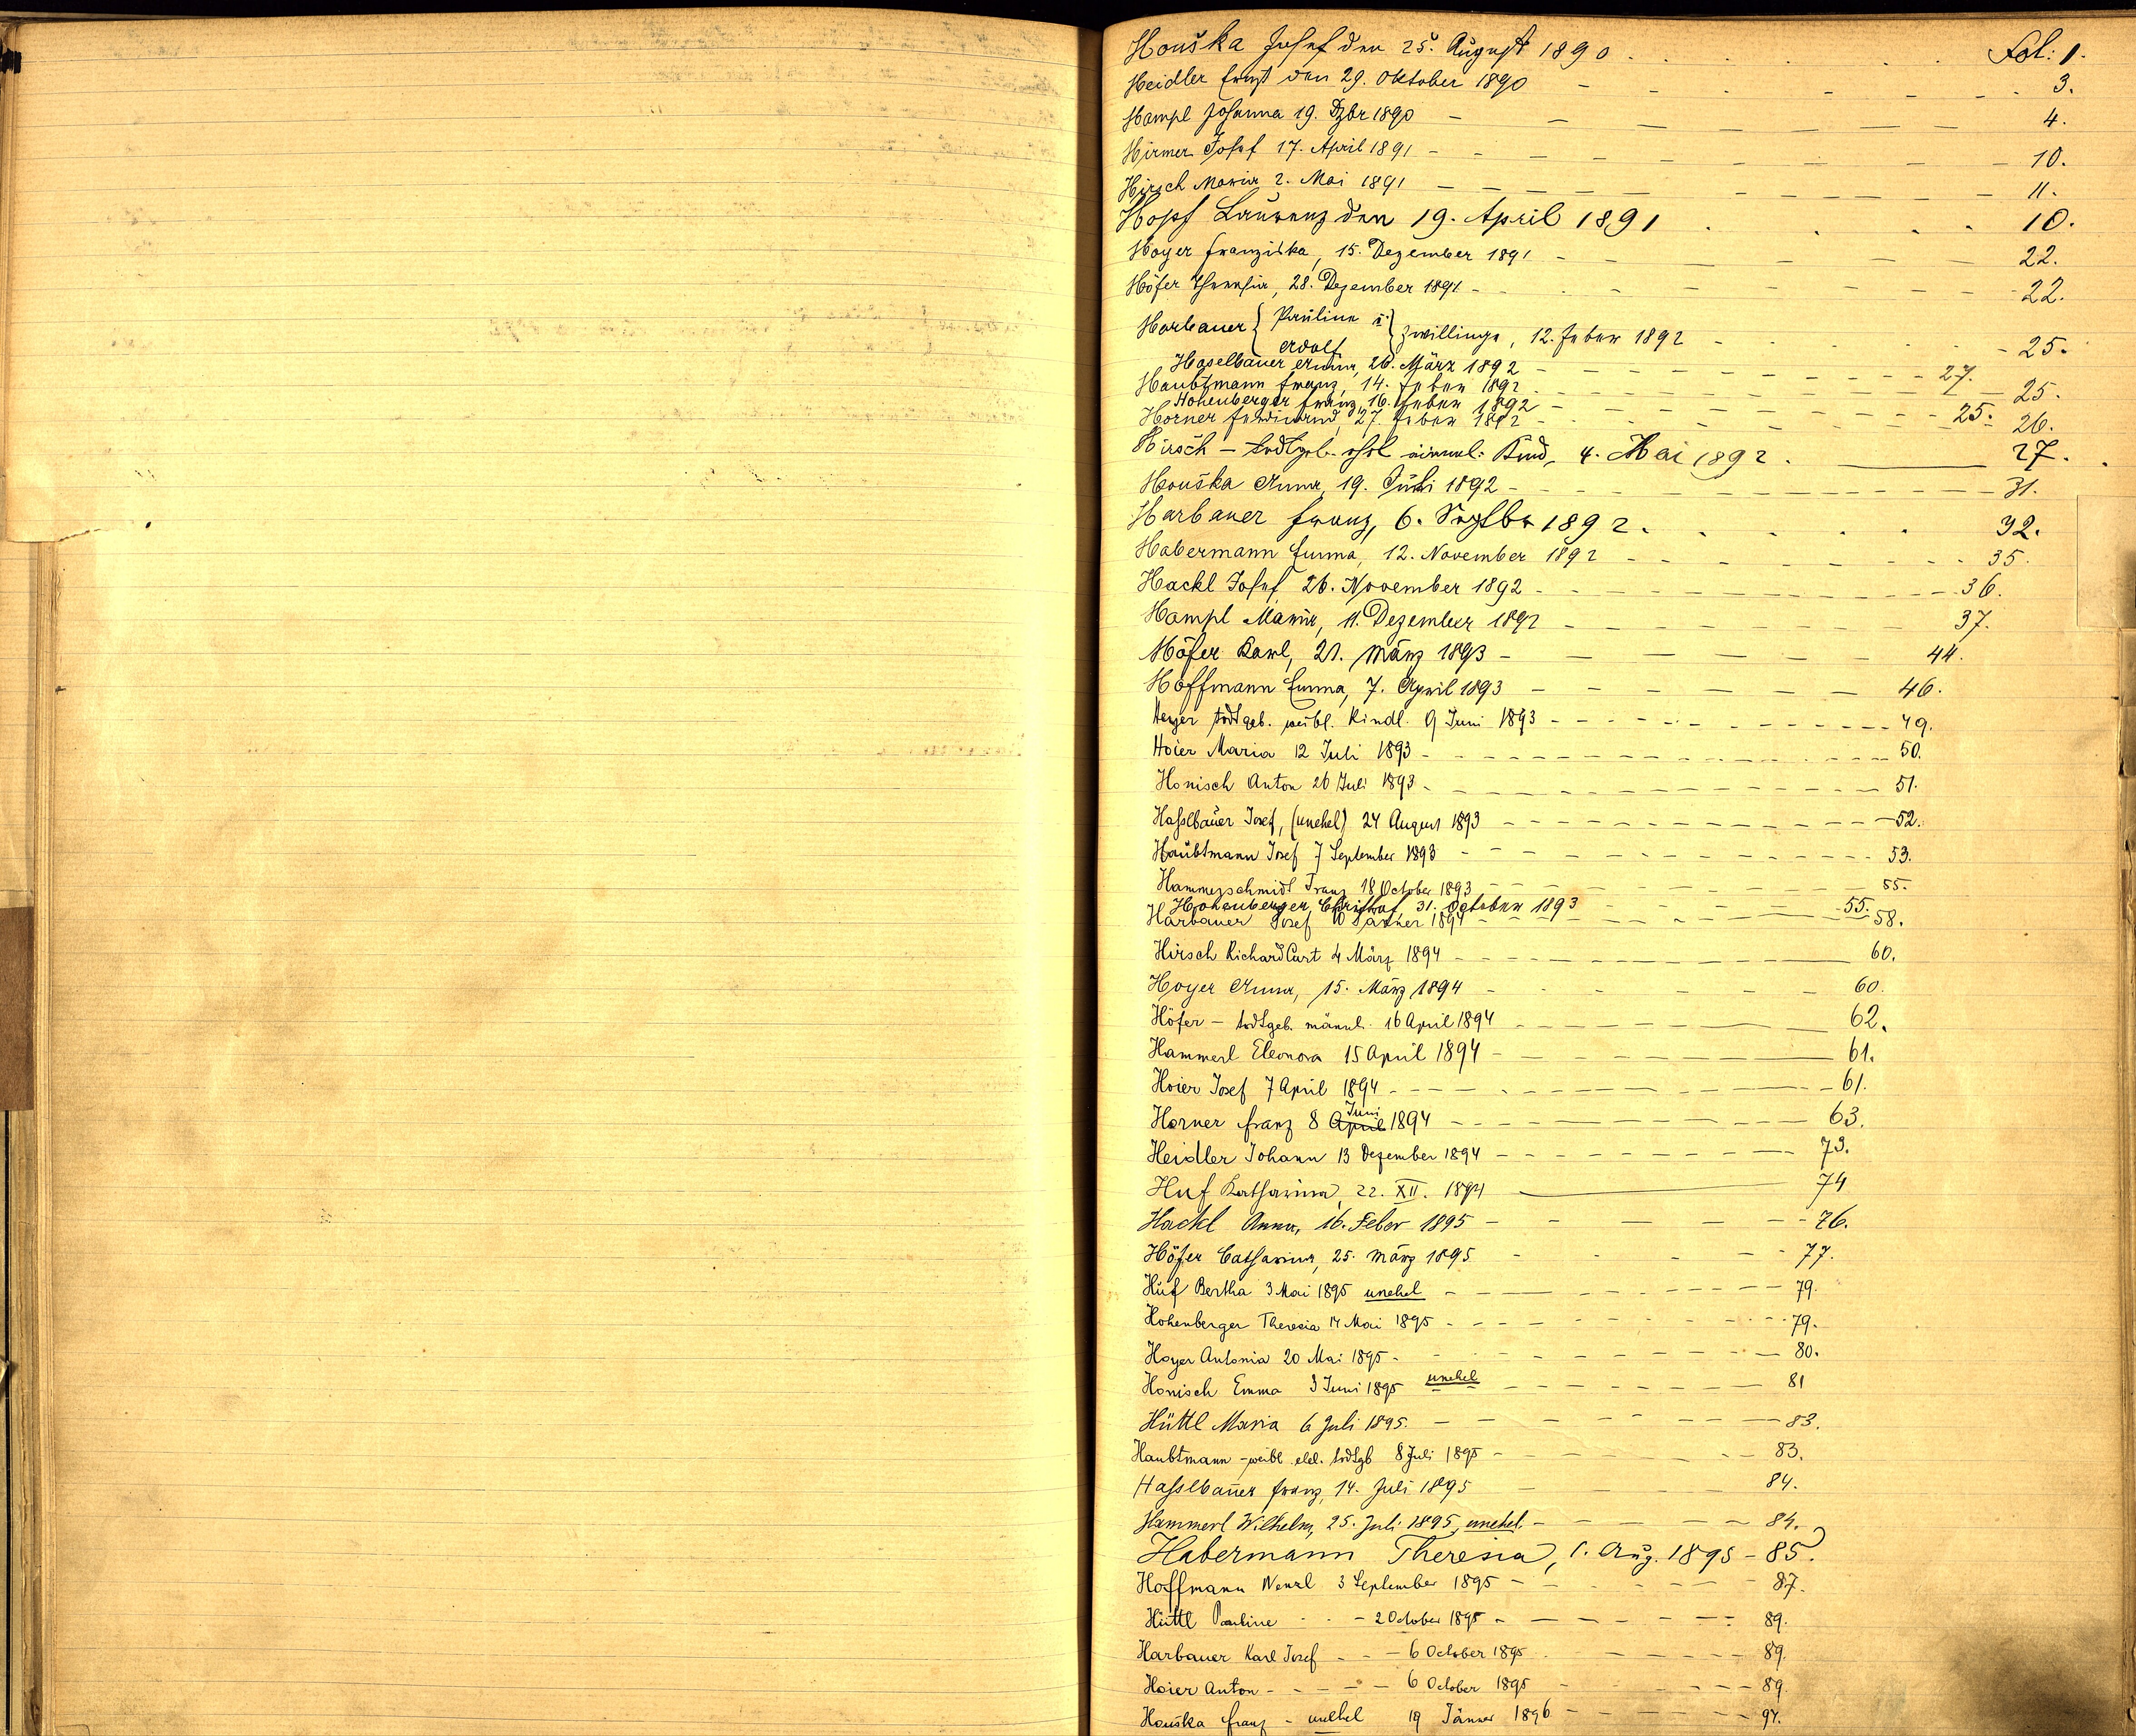 Houška Josef den 25. August 1890 Fol: 1.
Heidler Ernst den 29. Oktober 1890 3.
Hampl Johanna 19. Dzbr 1890 4.
Hirmer Josef 17. April 1891 10.
Hirsch Maria 2. Mai 1891 11.
Hopf Laurenz den 19. April 1891 10.
Hoyer Franziska, 15. Dezember 1891 22.
Höfer Theresia, 28. Dezember 1891 22.
Harbauer { Pauline u. Adolf } Zwillinge, 12. Feber 1892 25.
Haselbauer Anna, 26. März 1892 27.
Haubtmann Franz, 14. Feber 1892 25.
Hohenberger Franz, 16. Feber 1892 25.
Horner Ferdinand, 27. Feber 1892 26.
Hirsch – todtgeb. ehel männl. Kind, 4. Mai 1892. 27.
Houška Anna, 19. Juli 1892 31.
Harbauer Franz, 6. Septbr 1892. 32.
Habermann Emma, 12. November 1892 35.
Hackl Josef 26. November 1892 36.
Hampl Maria, 11. Dezember 1892 37.
Höfer Karl, 21. März 1893 44.
Hoffmann Emma, 7. April 1893 46.
Heyer todtgeb. weibl. Kindl. 9 Juni 1893 49.
Hoier Maria 12 Juli 1893 50.
Honisch Anton 26 Juli 1893 51.
Haßlbauer Josef, (unehel) 24 August 1893 52.
Haubtmann Josef 7 September 1893 53.
Hammerschmidt Franz 18 October 1893 55.
Hohenberger Christof 31. October 1893 55.
Harbauer Josef 10 Jänner 1894 58.
Hirsch Richard Curt 4 März 1894 60.
Hoyer Anna, 15. März 1894 60.
Höfer – todtgeb. männl. 16 April 1894 62.
Hammerl Eleonora 15 April 1894 61.
Hoier Josef 7 April 1894 61.
Horner Franz 8 April Juni 1894 63.
Heidler Johann 13 Dezember 1894 73.
Huf Katharina, 22. XII. 1894 74
Hackl Anna, 16. Feber 1895 76.
Höfer Catharina, 25. März 1895 77.
Huf Bertha 3 Mai 1895 unehel 79.
Hohenberger Theresia 14 Mai 1895 79.
Hoyer Antonia 20 Mai 1895 80.
Honisch Emma 3 Juni 1895 unehel 81
Hüttl Maria 6 Juli 1895. 83.
Haubtmann – weibl. ehel. todtgb 8 Juli 1895 83.
Haßlbauer Franz, 14. Juli 1895 84.
Hammerl Wilhelm, 25. Juli 1895, unehel. 84.
Habermann Theresia, 1. Aug. 1895 – 85.
Hoffmann Wenzl 3 September 1895 87.
Hüttl Pauline 2 October 1895 89.
Harbauer Karl Josef 6 October 1895 89.
Hoier Anton 6 October 1895 89
Houška Franz – unehel 19 Jänner 1896 94.